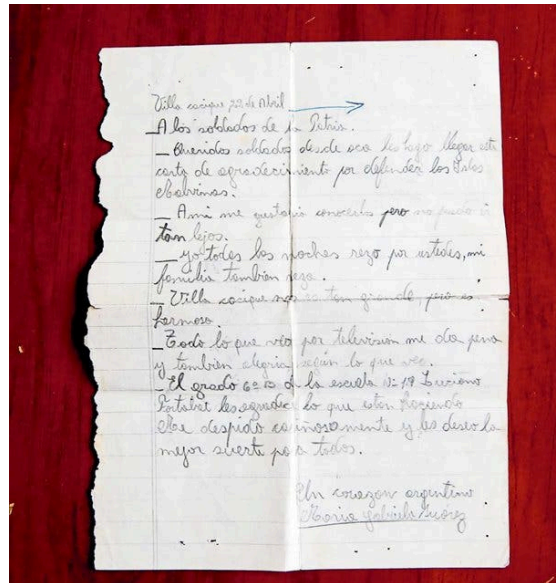 Villa cacique, 22 de Abril
_A los soldados de la Patria.
_ Queridos soldados desde aca les hago llegar esta
carta de agradecimiento por defender las Islas
Malvinas.
_ A mi me gustaria conocerlos pero no puedo ir
tan lejos.
_ yo todas las noches rezo por ustedes, mi
familia tambien reza.
_ Villa cacique no es tan grande pero es
hermosa
_Todo lo que veo por television me da pena
y tambien alegria según lo que veo.
_El grado 6º B de la escuela Nº 19 Luciano
Fortabat les agradece lo que estan haciendo
Me despido cariñosamente y les deseo la
mejor suerte para todos.
Un corazon argentino
Maria Gabriela Suarez